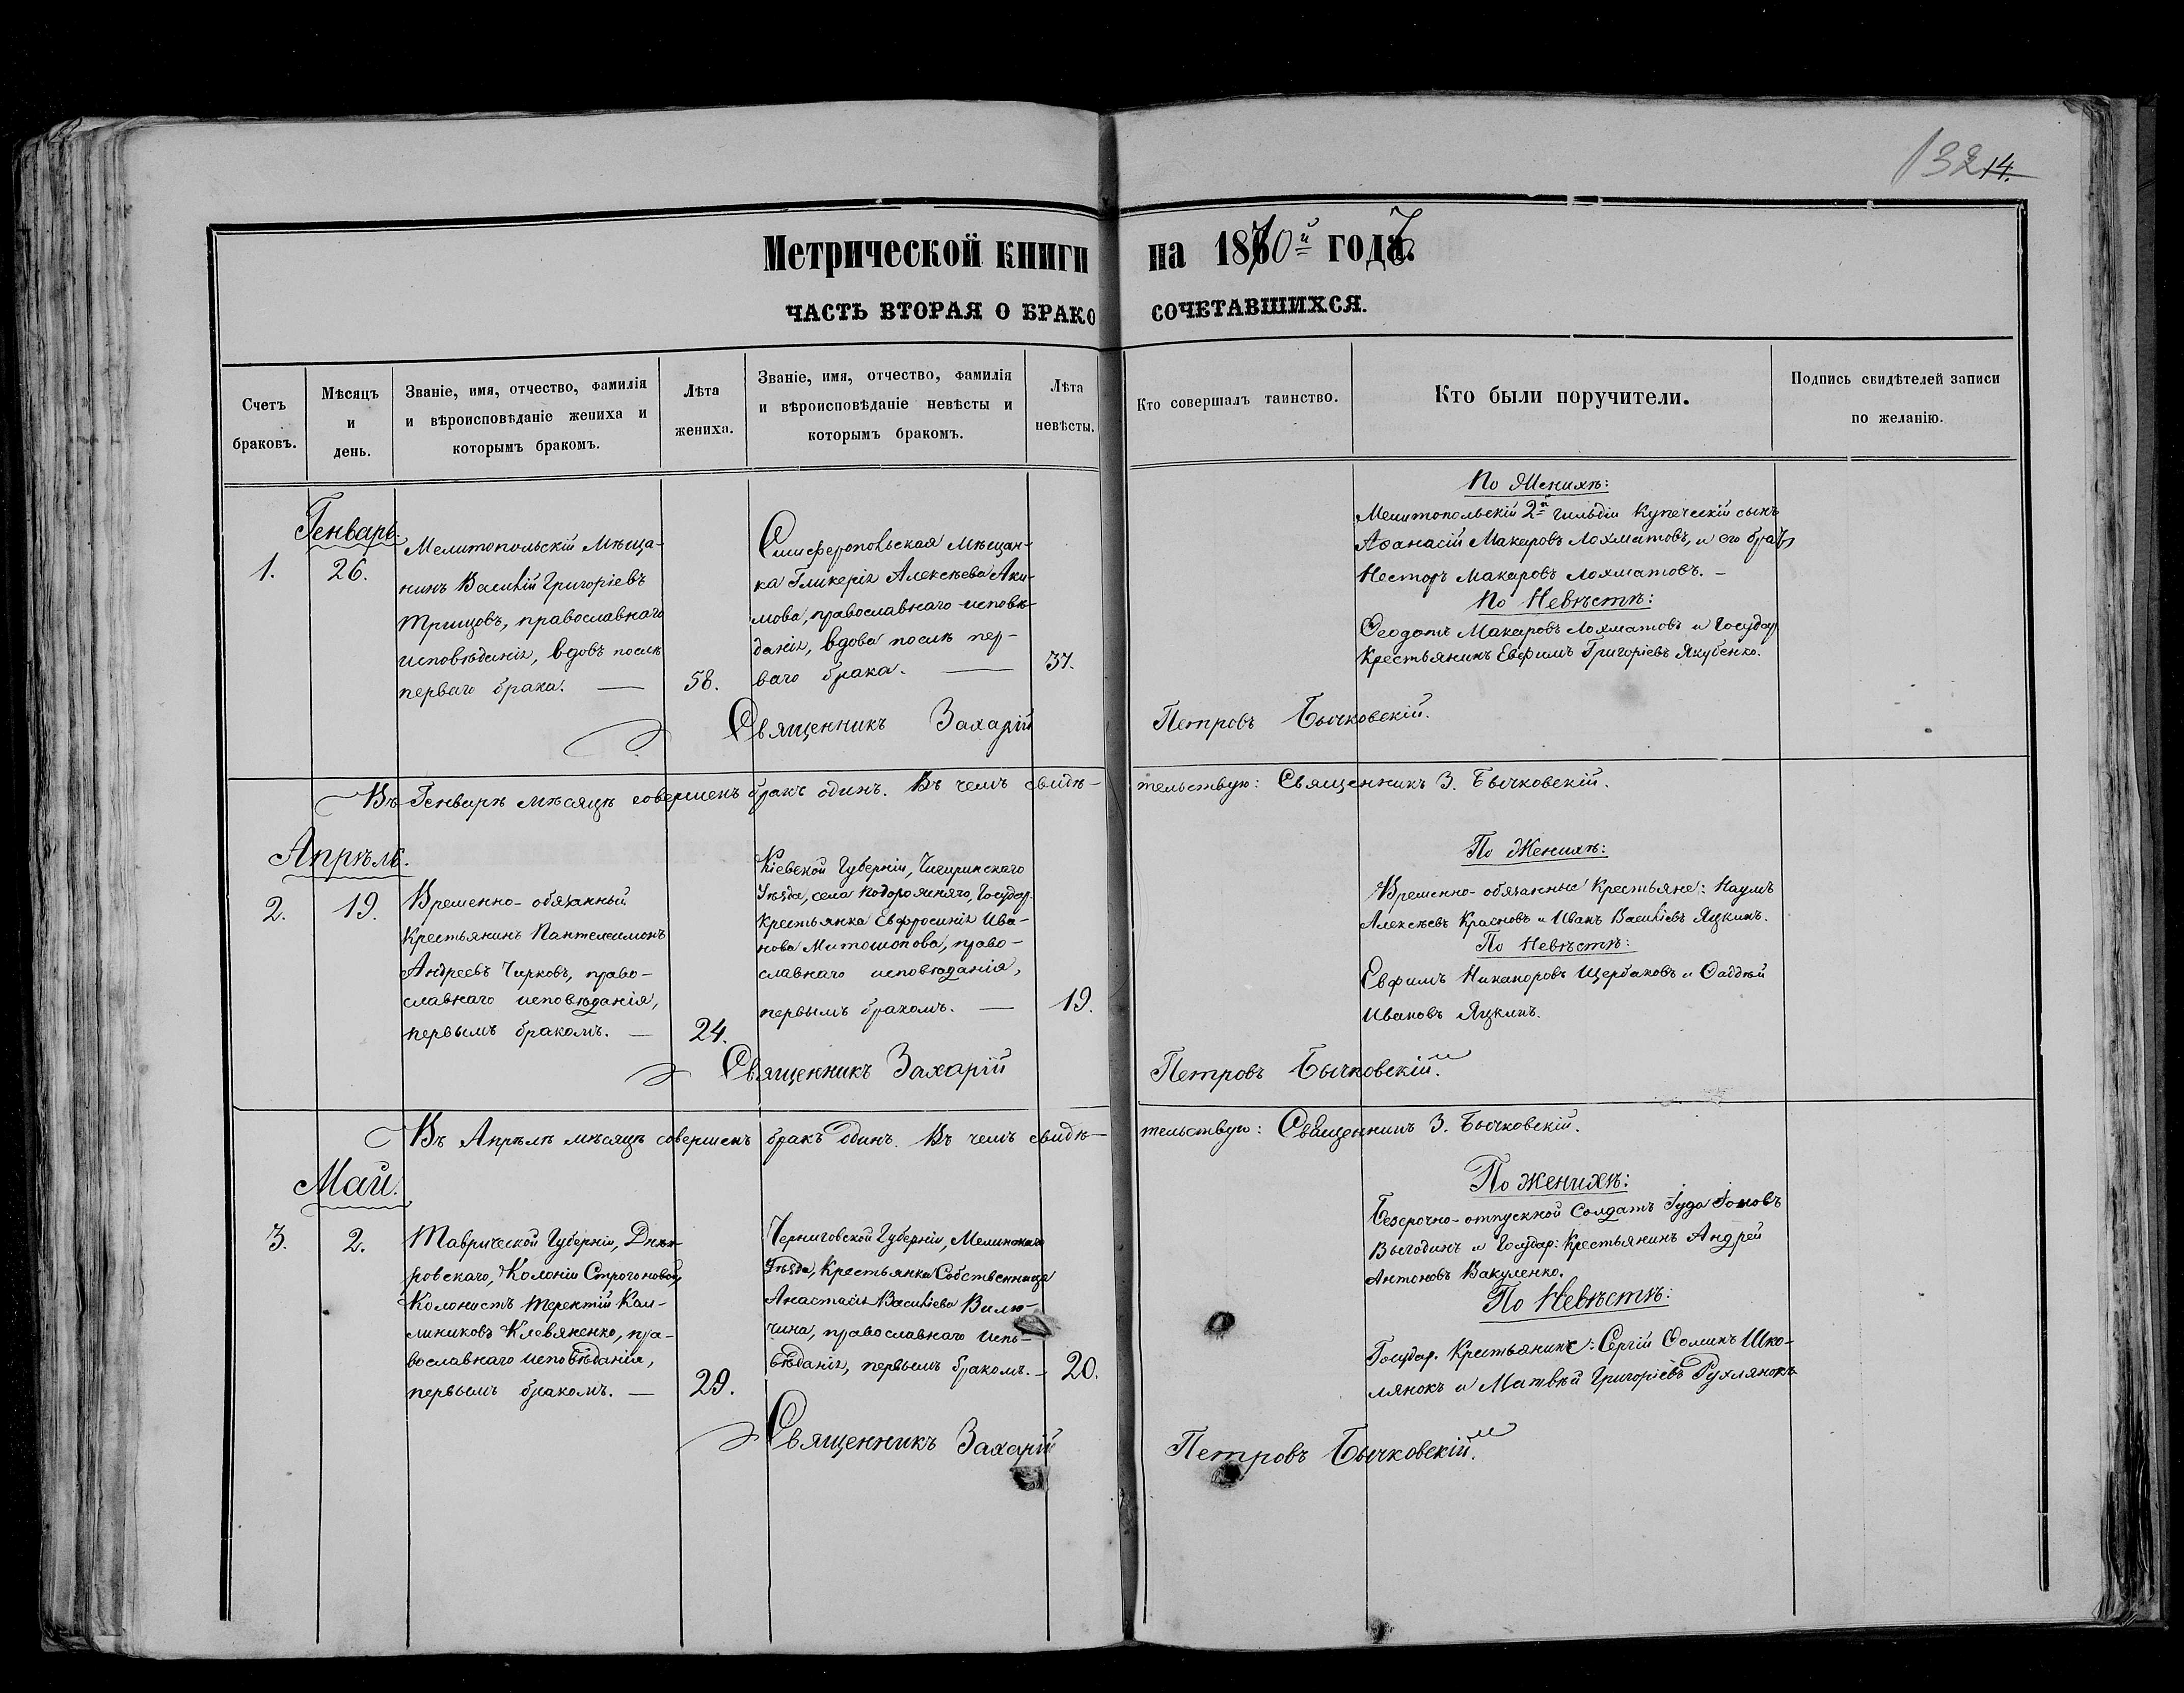 13214.
Метрической книги на 1870й годъ.
ЧАСТЬ ВТОРАЯ О БРАКОСОЧЕТАВШИХСЯ.
Счетъ
браковъ.
Мѣсяцъ
и
день.
Званіе, имя, отчество, фамилія
и вѣроисповѣданіе жениха и
которымъ бракомъ.
Лѣта
жениха.
Званіе, имя, отчество, фамилія
и вѣроисповѣданіе невѣсты и
которымъ бракомъ.
Лѣта
невѣсты.
Кто совершалъ таинство.
Кто были поручители.
Подпись свидѣтелей записи
по желанію.
Генварь.
1.
26.
Мелитопольскій Мѣща-
нинъ Василій Григоріевъ
Тришовъ, православнаго
исповѣданія, вдовъ послѣ
перваго брака. —
58.
Симферопольская Мѣщан-
ка Гликерія Алексѣева Аки-
мова, православнаго исповѣ-
данія, вдова послѣ пер-
ваго брака. —
37.
По Женихѣ:
Мелитопольскій 2й гильдіи Купеческій сынъ
Аѳанасій Макаровъ Лохматовъ, и его братъ
Несторъ Макаровъ Лохматовъ. —
По Невѣстѣ:
Ѳеодотъ Макаровъ Лохматовъ и Государ.
Крестьянинъ Евфимъ Григоріевъ Якубенко.
Священникъ Захарій Петровъ Бычковскій.
Въ Генварѣ мѣсяцѣ совершенъ бракъ одинъ. Въ чемъ свидѣ-тельствую: Священникъ З. Бычковскій.
Апрѣль.
2.
19.
Временно-обязанный
Крестьянинъ Пантелеимонъ
Андреевъ Чирковъ, право-
славнаго исповѣданія,
первымъ бракомъ. —
24.
Кіевской Губерніи, Чигиринскаго
Уѣзда, села Подорожняго, Государ.
Крестьянка Евфросинія Ива-
нова Митошопова, право-
славнаго исповѣданія,
первымъ бракомъ. —
19.
По Женихѣ:
Временно-обязанные Крестьяне: Наумъ
Алексѣевъ Красновъ и Иванъ Василіевъ Яцкинъ.
По Невѣстѣ:
Евфимъ Никаноровъ Щербаковъ и Ѳаддѣй
Ивановъ Яцкинъ.
Священникъ Захарій Петровъ Бычковскій.
Въ Апрѣлѣ мѣсяцѣ совершенъ бракъ одинъ. Въ чемъ свидѣ-тельствую: Священникъ З. Бычковскій.
Май.
3.
2.
Таврической Губерніи, Днѣп-
ровскаго, Колоніи Строгоновой,
Колонистъ Терентій Кал-
линиковъ Клевяненко, пра-
вославнаго исповѣданія,
первымъ бракомъ. —
29.
Черниговской Губерніи, Мглинскаго
Уѣзда, Крестьянка Собственница
Анастасія Василіева Вилю-
чина, православнаго испо-
вѣданія, первымъ бракомъ. —
20.
По Женихѣ:
Безсрочно-отпускной Солдатъ Іуда Іоновъ
Выгодинъ и Государ: Крестьянинъ Андрей
Антоновъ Вакуленко.
По Невѣстѣ:
Государ. Крестьянине: Сергій Ѳоминъ Шко-
лянокъ и Матвѣй Григоріевъ Рухлянокъ
Священникъ Захарій Петровъ Бычковскій.